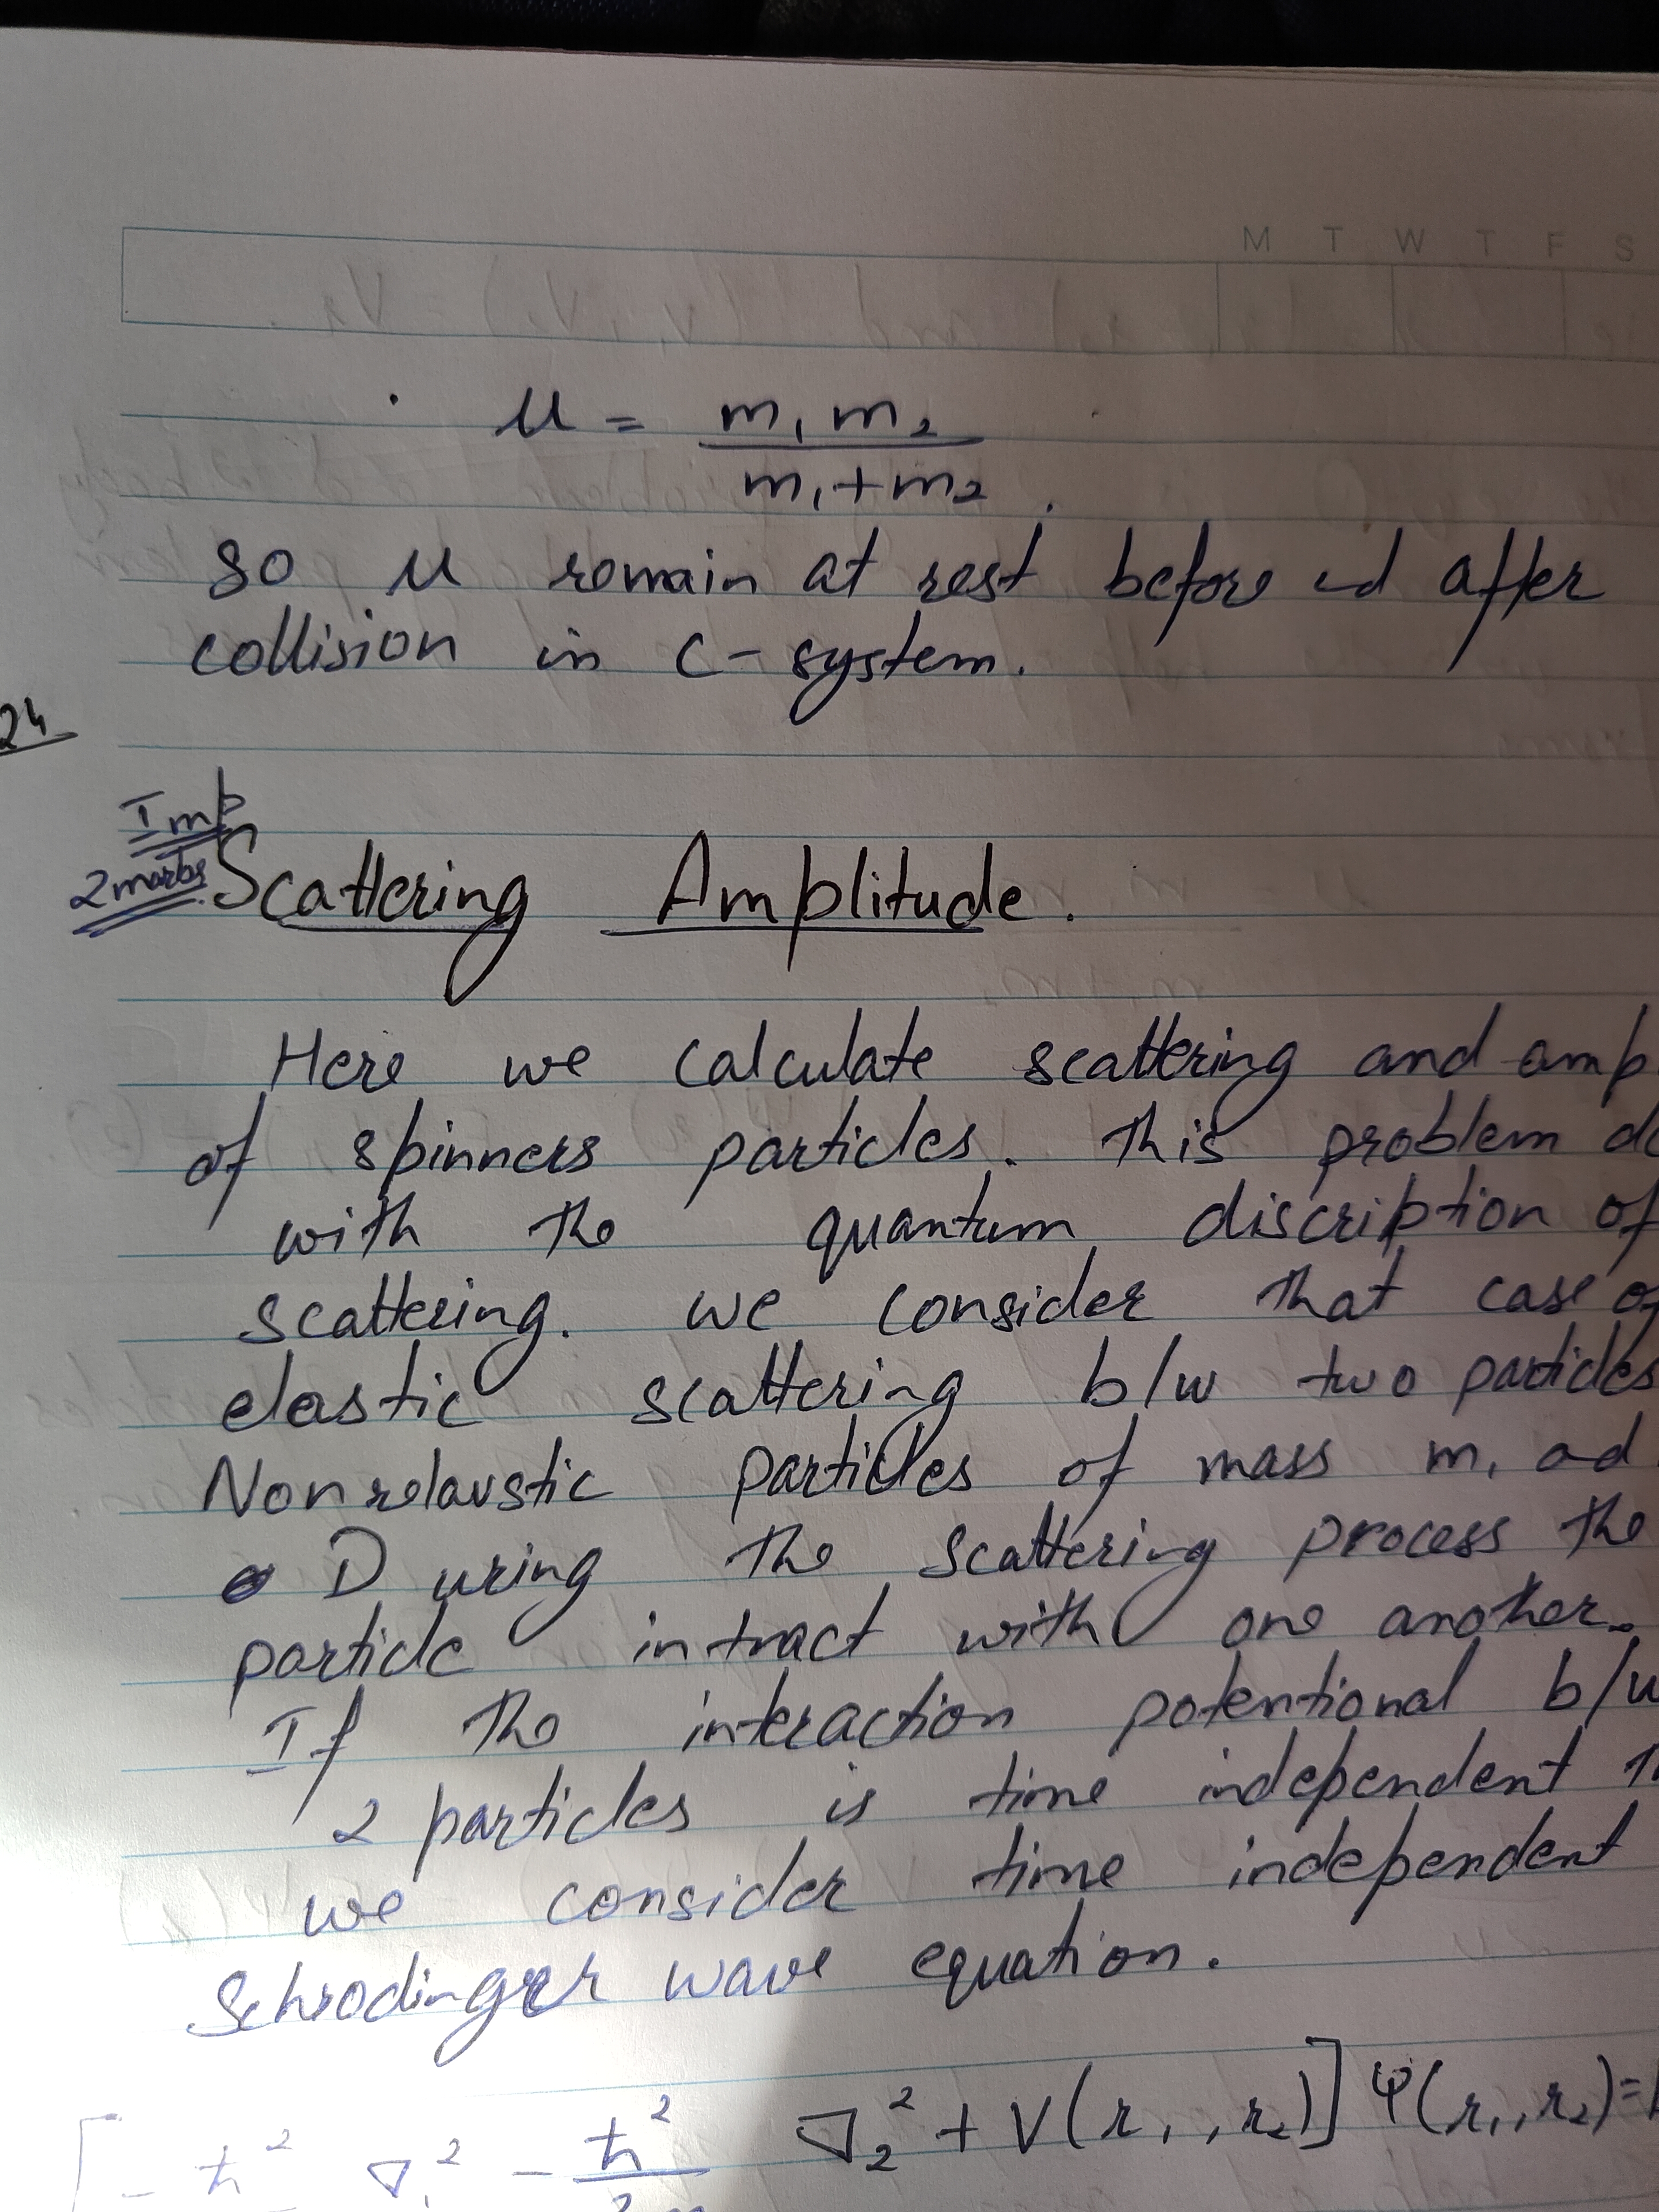 M T W T F S
μ = m₁ m₂ / m₁+m₂
so μ remain at rest before nd after
collision in C-system.
24
Imp
2 marks
Scattering Amplitude.
Here we calculate scattering and amp
of spinners particles. This problem de
with the quantum discription of
scattering. we consider that case of
elastic scattering b/w two particles
Nonrelavstic particles of mass m₁ ad
During the scattering process the
particle intract with one another.
If the interaction potentional b/w
2 particles is time independent
we consider time independent
Schrodinger wave equation.
[-ħ² ∇₁² - ħ²/2m ∇₂² + V(r₁,r₂)] Ψ(r₁,r₂)=